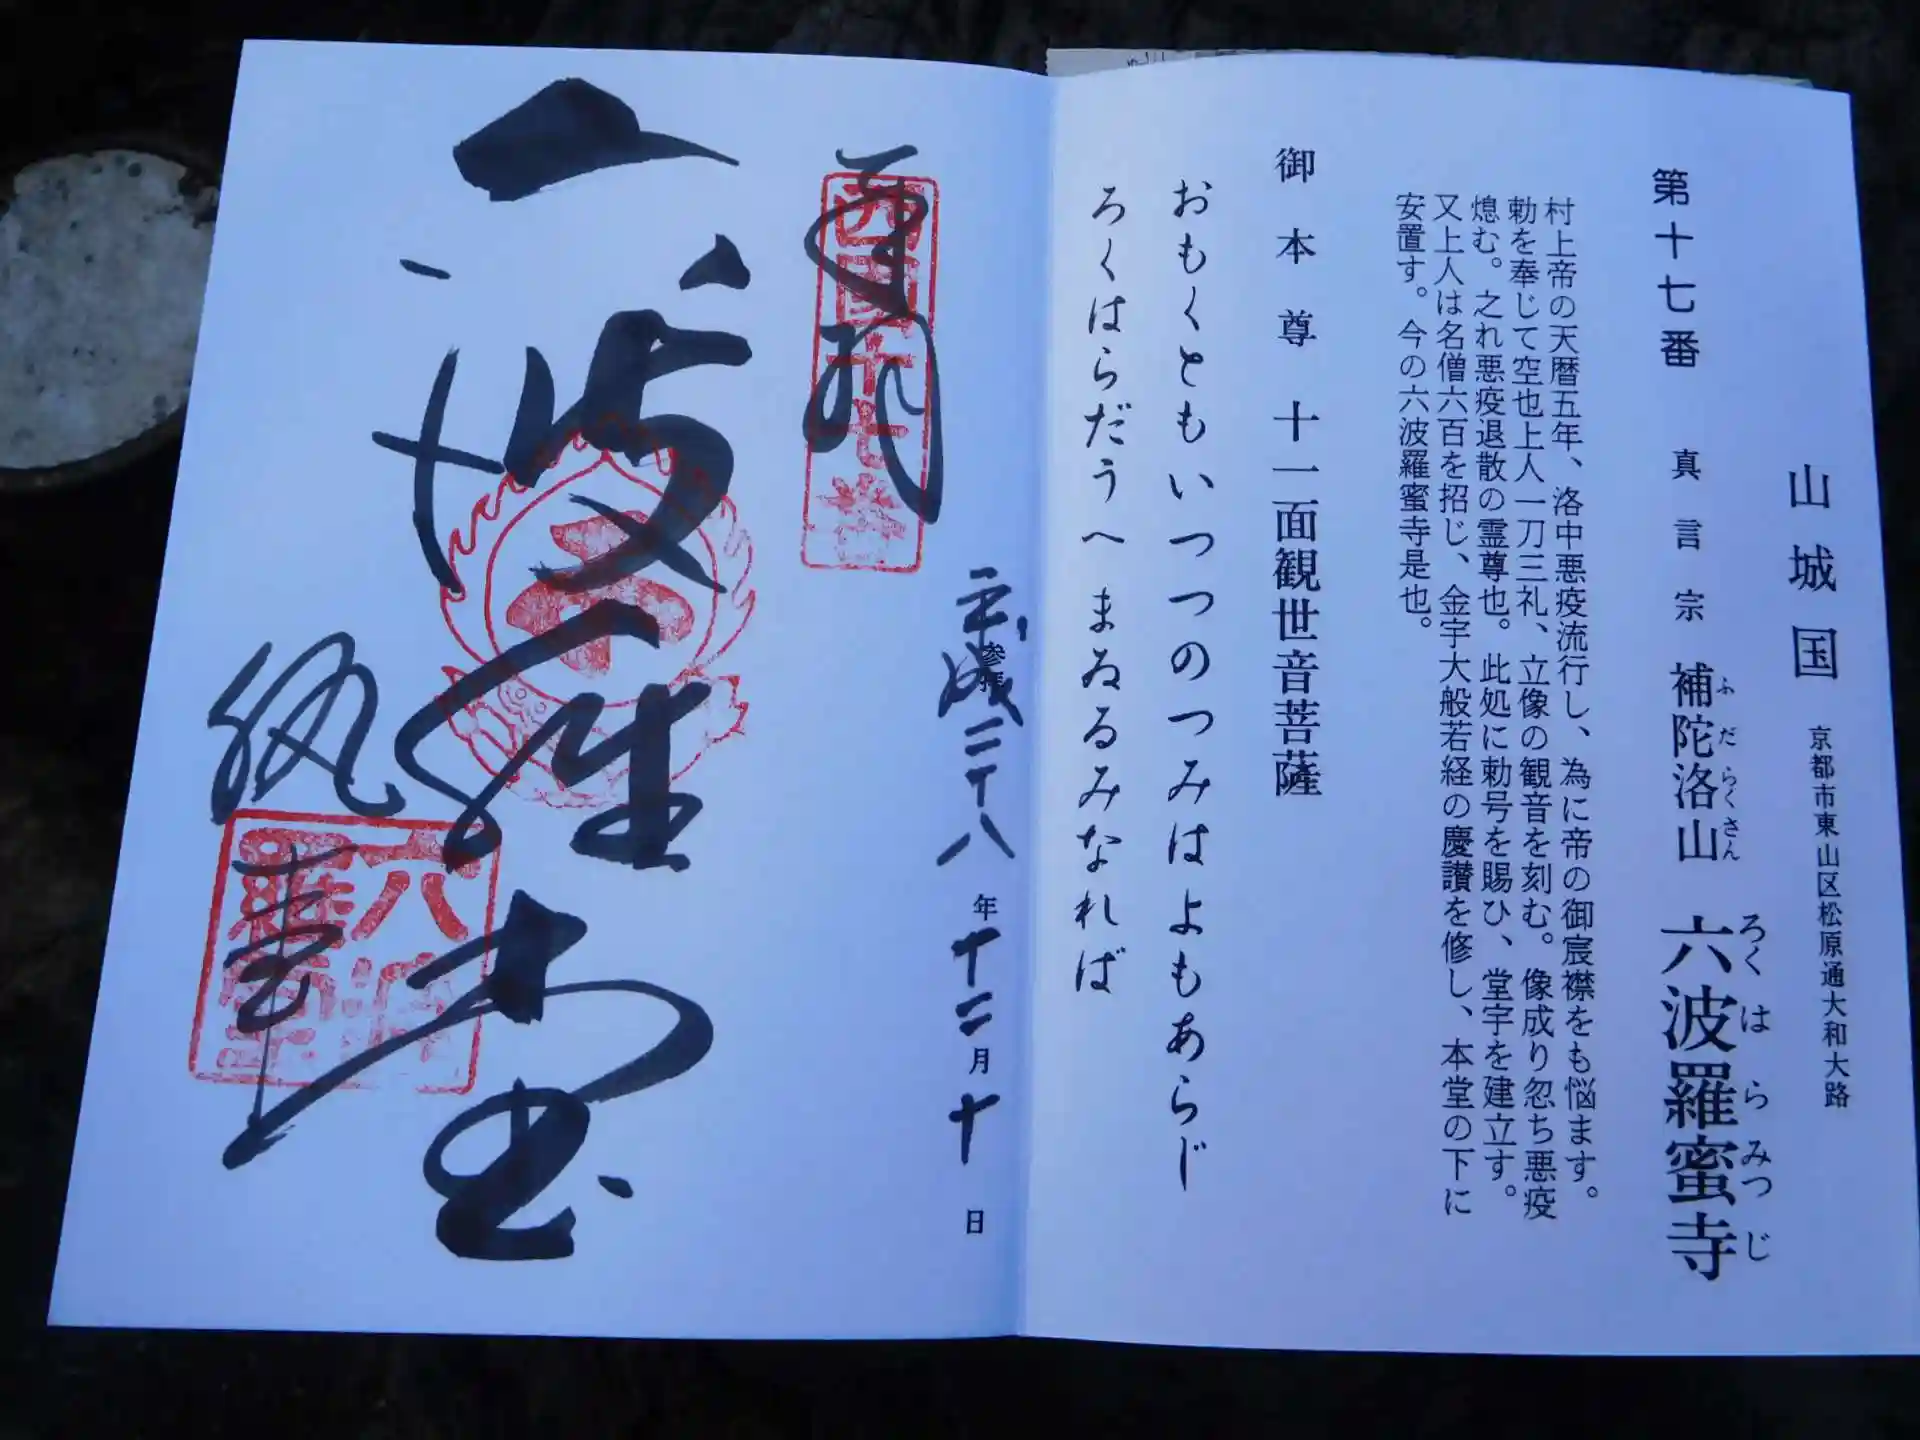 山城国 京都市東山区松原通大和大路
第十七番 真言宗 補陀洛山 六波羅蜜寺
ふだらくさん ろくはらみつじ
村上帝の天暦五年、洛中悪疫流行し、為に帝の御宸襟をも悩ます。
勅を奉じて空也上人一刀三礼、立像の観音を刻む。像成り忽ち悪疫
熄む。之れ悪疫退散の霊尊也。此処に勅号を賜ひ、堂宇を建立す。
又上人は名僧六百を招じ、金字大般若経の慶讃を修し、本堂の下に
安置す。今の六波羅蜜寺是也。
御本尊 十一面観世音菩薩
おもくともいつつのつみはよもあらじ
ろくはらだうへまゐるみなれば
参拝
平成二十八年十二月十日
奉拝
西国十七番
六波羅堂
六波羅蜜寺